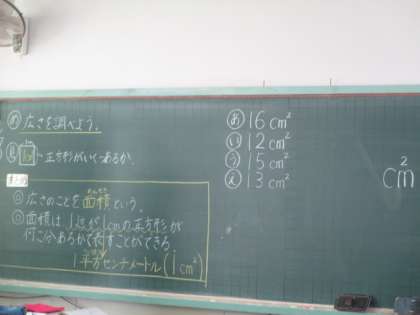 め 広さを調べよう。
正方形がいくつあるか。
まとめ
◎広さのことを面積という。
めんせき
◎面積は1辺が1cmの正方形が
何こ分あるかで表すことができる
1平方センチメートル(1cm²)
あ 16cm²
い 12cm²
う 15cm²
え 13cm²
cm²